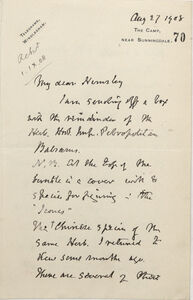 Aug 27 1908
TELEGRAMS,
WINDLESHAM.
THE CAMP,
NEAR SUNNINGDALE.
70
1.IX.08
My dear Hemsley
I am sending off a box
with the remainder of the
Herb. Hort. Imp. Petropolitan
Balsams.
N.B. At the top of the
bundle is a cover with
species for figuring in the
"Icones"
The Chinese species of the
same Herb. I returned to
Kew some months ago.
There are several of